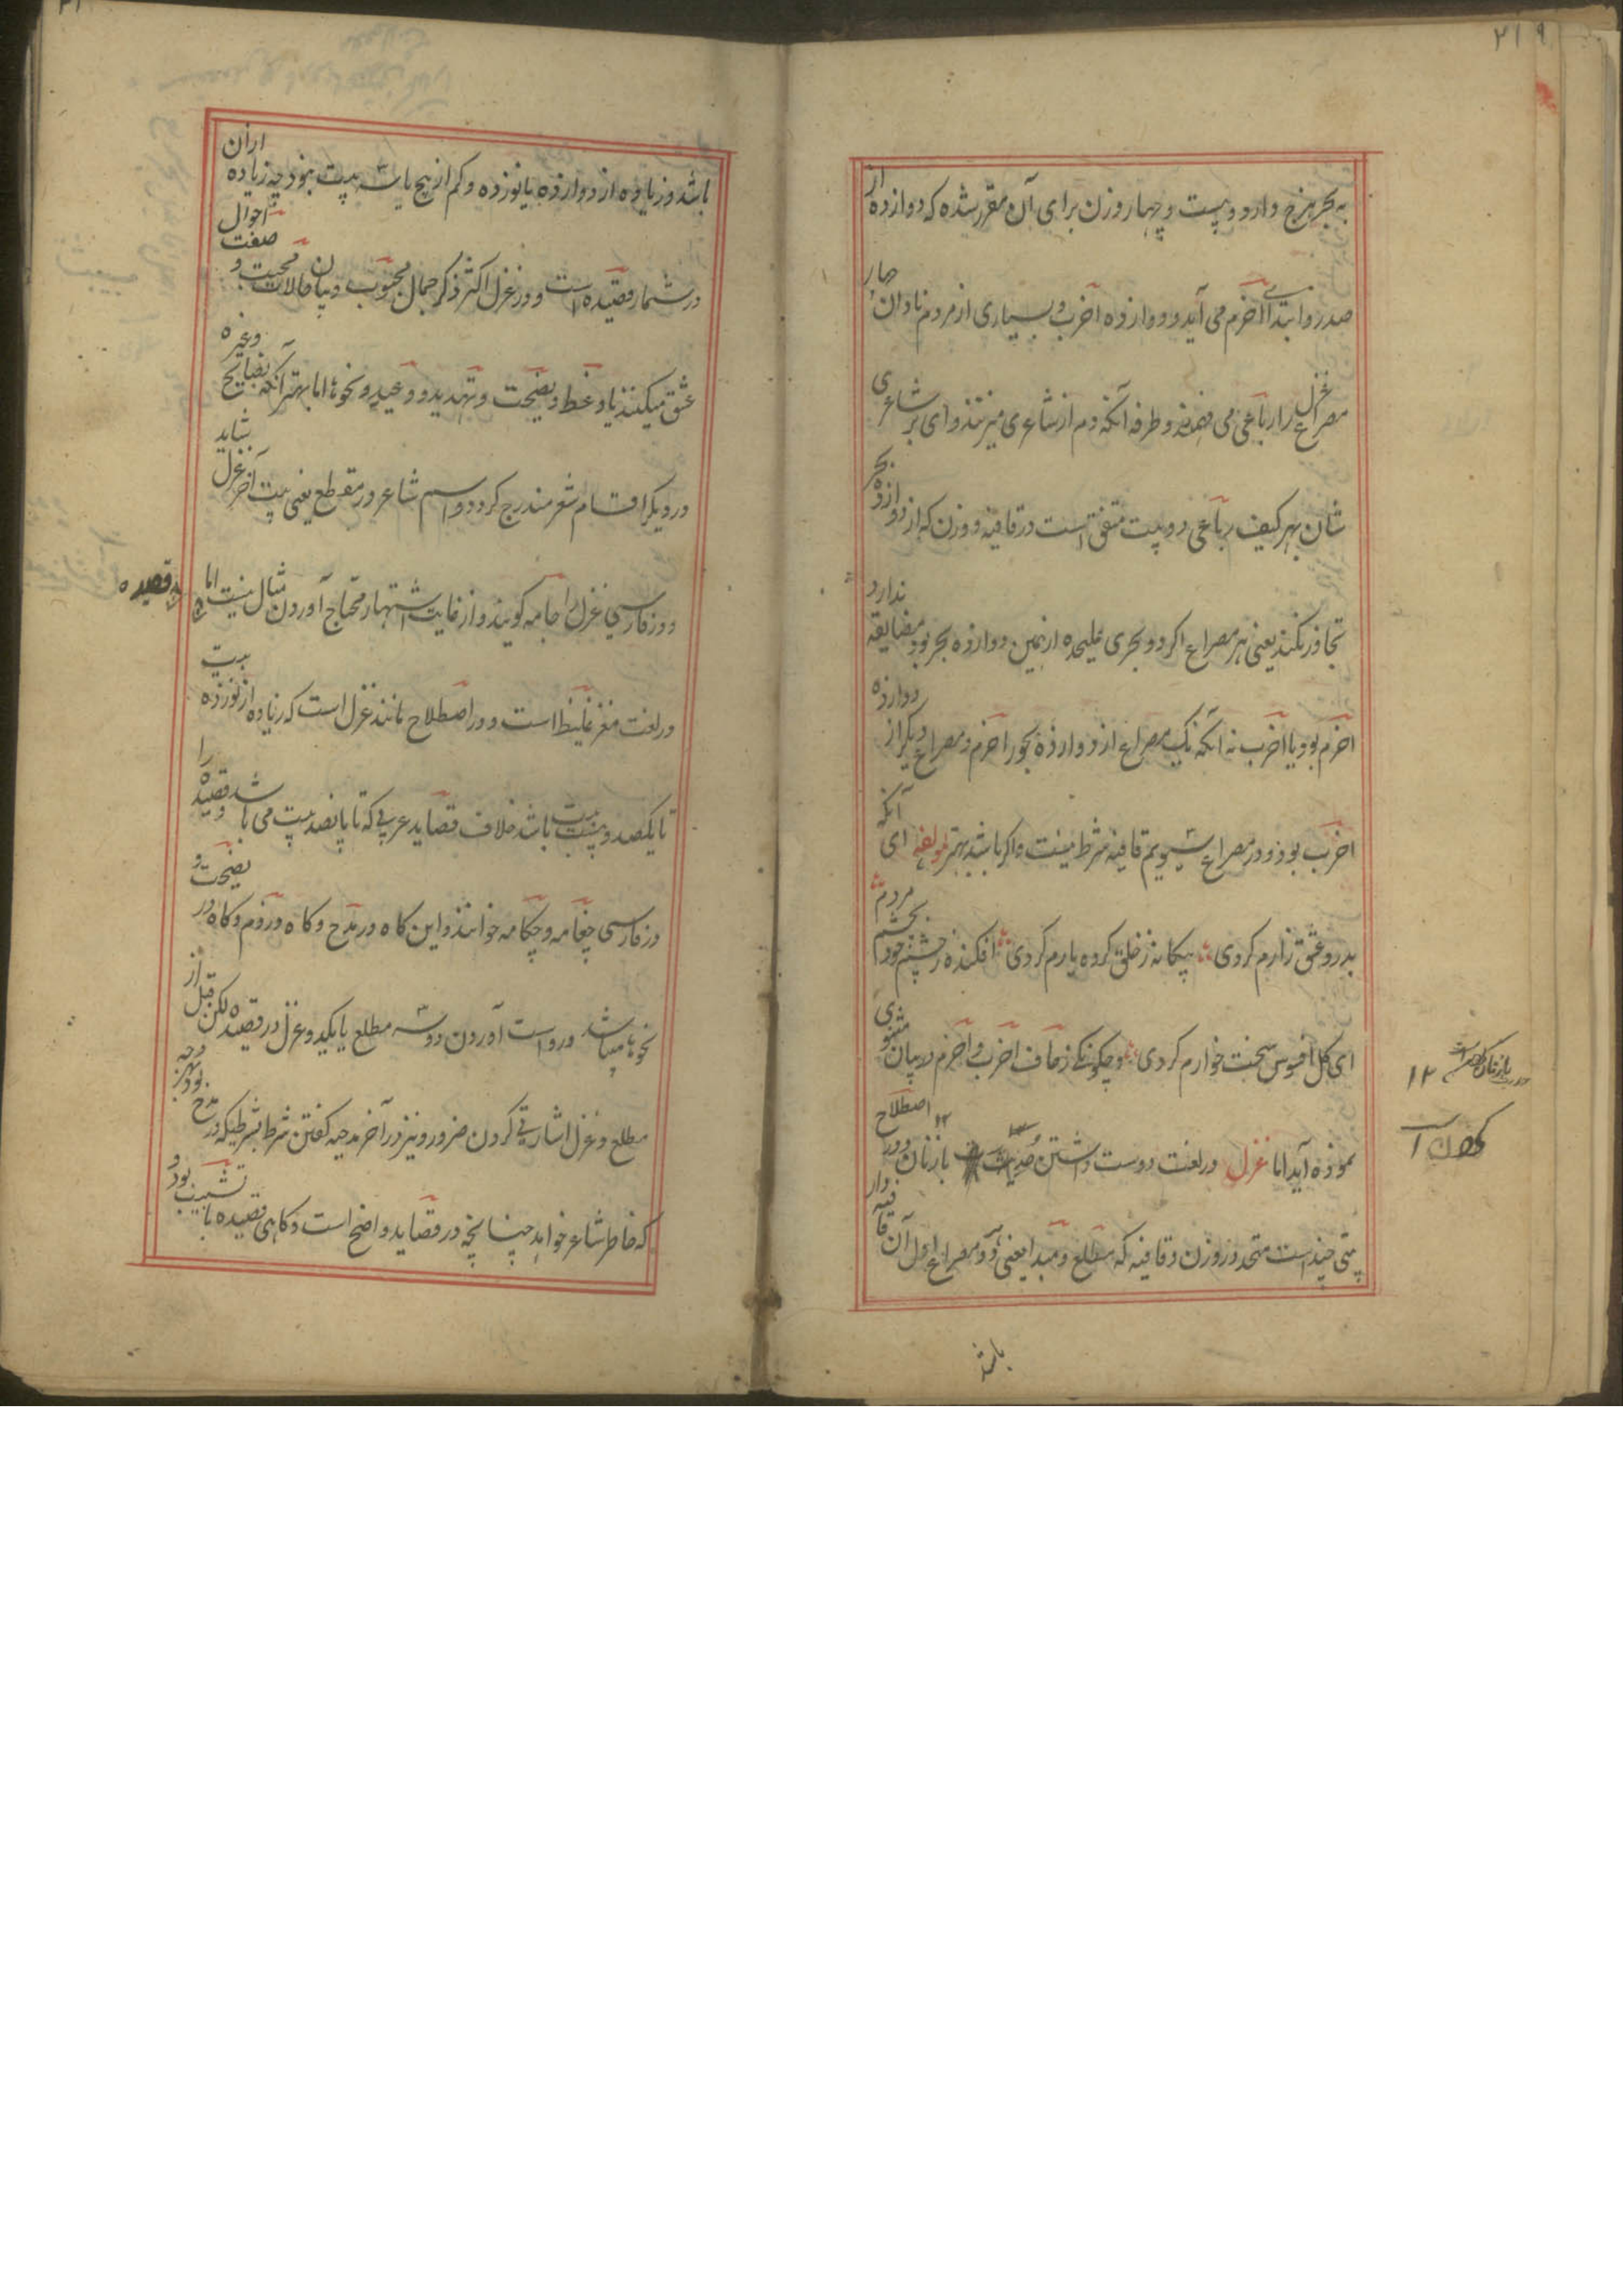 ۲۱۹
به بحر هزج دارد و بیست و چهار وزن برای آن مقرر شده که دوازده از
صدر و ابتدای اخرم می آید و دوازده اخرب و بسیاری از مردم نادان چار
مصراع غزل را رباعی می فهمند و طرفه آنکه دم از شاعری میزنند وای بر شاعری
شان بهر کیف رباعی دو بیت متفق است در قافیه و وزن که از دوازده بحر
تجاوز نکند یعنی هر مصراع اگر دو بحری علیحده ازیمین دوازده بحر بود مضایقه ندارد
اخرم بود یا اخرب نه آنکه یک مصراع از دوازده بحور اخرم و مصراع دیگر از دوازده
اخرب بود و در مصراع سیویم قافیه شرط نیست و اگر باشد بهتر لمولفه ای آنکه
بدرد عشق زارم کردی بیگانه ز خلق کرده یارم کردی افکنده ز چشم خود بچشم مردم
ای گل افسوس سخت خوارم کردی و چگونگی زحاف اخرب و اخرم در بیان مثنوی
نموده آید اما غزل در لغت دوست داشتن حدیث با زنان و در اصطلاح
بیتی چند است متحد در وزن و قافیه که مطلع و مبدا یعنی هر دو مصراع اول آن قافیه دار
۱۲
باشد
باشد و زیاده از دوازده یا نوزده و کم از پنج یا شش بیت نبود چه زیاده ازان
در شمار قصیده است و در غزل اکثر ذکر جمال محبوب و بیان حالات محبت و صفت احوال
عشق میکنند یا وعظ و نصیحت و تهدید و وعید و نحوها اما بهتر آنکه نصایح وغیره
در دیگر اقسام شعر مندرج کردد و اسم شاعر در مقطع یعنی بیت آخر غزل بباید
و در فارسی غزل را جامه کویند و از غایت اشتهار محتاج آوردن مثال نیست اما قصیده
در لغت مغز غلیظ است و در اصطلاح مانند غزل است که زیاده از نوزده بیت
تا یکصد و بیست بیت باشد خلاف قصاید عربی که تا پانصد بیت می باشد و قصیده را
در فارسی چغامه و چکامه خوانند و این کاه در مدح و کاه در ذم و کاه در نصیحت و
نحوها میباشد و رواست آوردن دو سه مطلع یا یکدو غزل در قصیده لکن قبل از
مطلع و غزل اشارتی کردن ضرور و نیز در آخر مدحیه کفتن شرط بشرطیکه در مدح بود و کرنه
که خاطر شاعر خواهد چنانچه در قصاید واضح است و کاهی قصیده با تشبیب بود و
قصیده